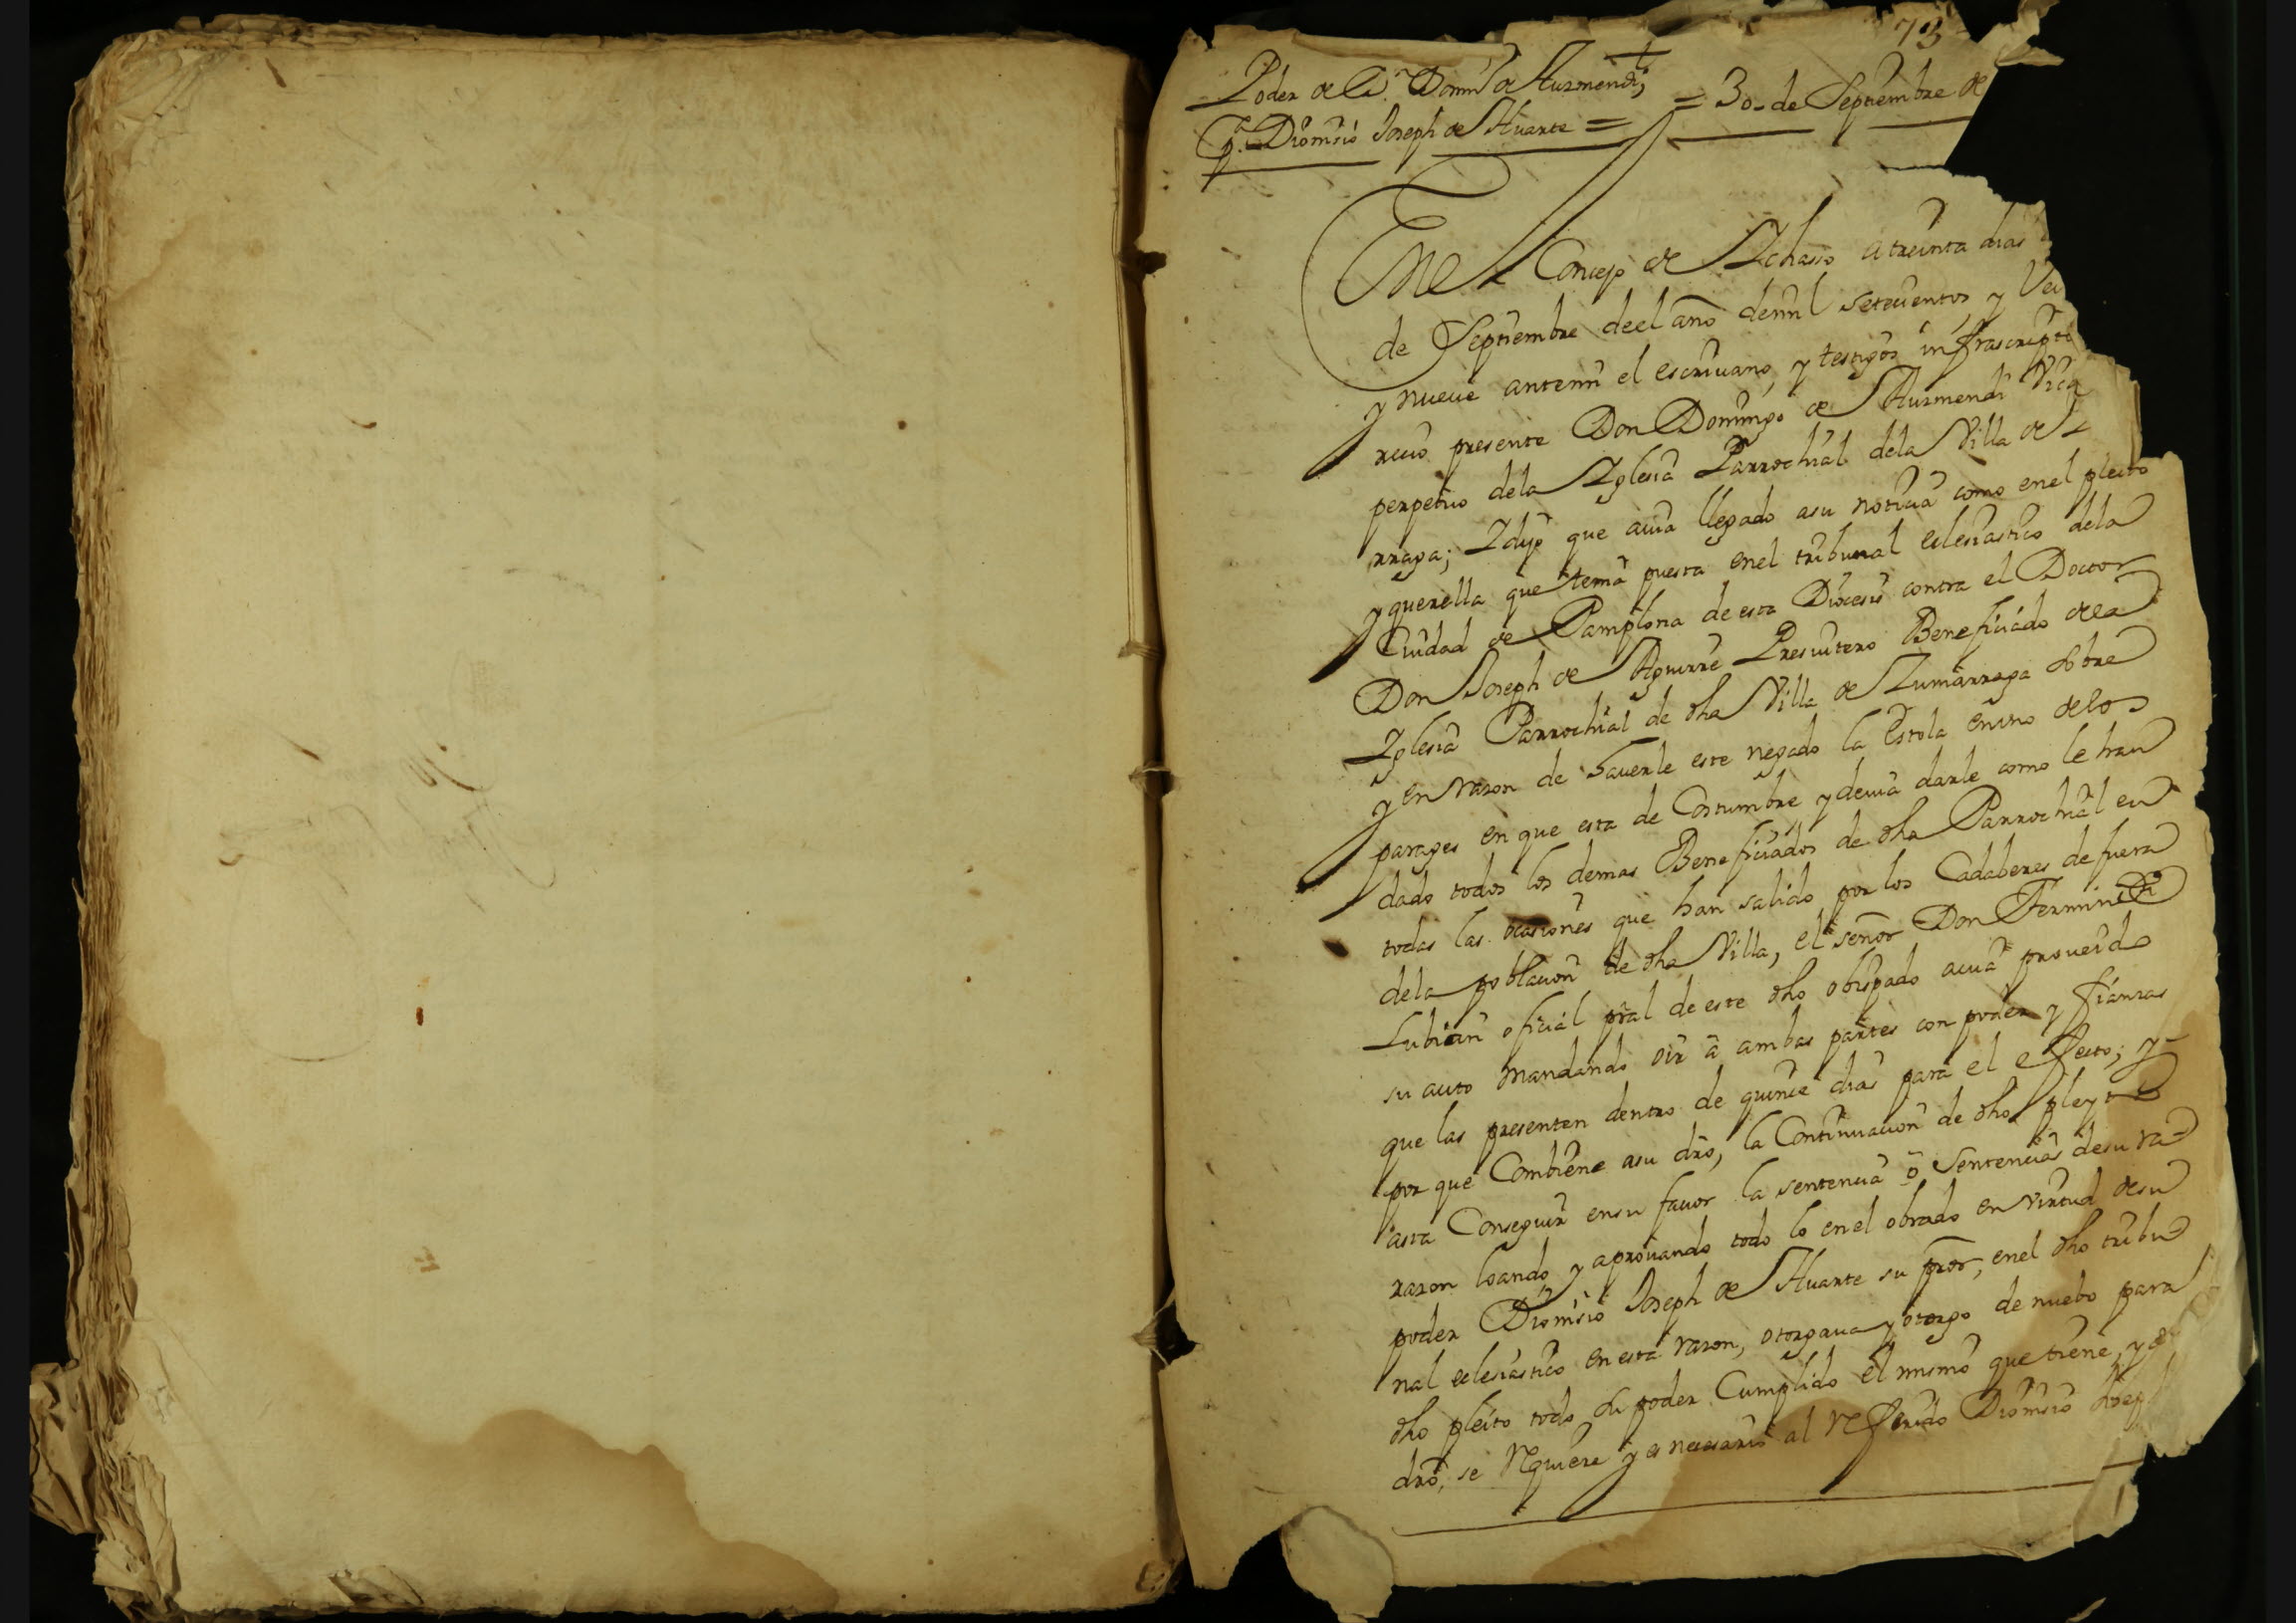 73
Poder de D.ⁿ Domⁿ de Aurmendi,
P.ª Dionisio Joseph de Huarte = = 30 de Septiembre de
En el Concejo de Ichaso a treinta dias
de Septiembre de el año de mil setecientos, y Vei
y nueve ante mi el escrivano, y testigos infrascripto
recio presente Don Domingo de Aurmendi Vica
perpetuo de la Yglesia Parrochial de la Villa de Z
rraga; Y dijo que avia llegado a su noticia como en el pleito
y querella que tenia puesta en el tribunal eclesiastico de la
Ciudad de Pamplona de esta Diocesis contra el Doctor
Don Joseph de Aguirre Presvitero Beneficiado de la
Yglesia Parrochial de dha Villa de Zumarraga sobre
y en razon de haverle este negado la Estola en uno de los
parages en que esta de Costumbre y devia darle como le han
dado todos los demas Beneficiados de dha Parrochial en
todas las ocasiones que han salido por los Cadaberes de fuera
de la poblacion de dha Villa, el señor Don Fermin de
Lubian oficial pral de este dho obispado avia proveido
su auto mandando oir a ambas partes con poder y fianzas
que las presenten dentro de quince dias para el efecto; y
por que Combiene a su dro, la Continuacion de dho pleyto
asta Conseguir en su favor la sentencia o Sentencias de su ra
razon loando, y aprovando todo lo en el obrado en virtud de su
poder Dionisio Joseph de Huarte su pror, en el dho tribu
nal eclesiastico en esta razon, otorgava y otorgo de nuebo para
dho pleito todo su poder Cumplido el mismo que tiene, y de
dro, se requiere y es necesario al referido Dionisio Joseph